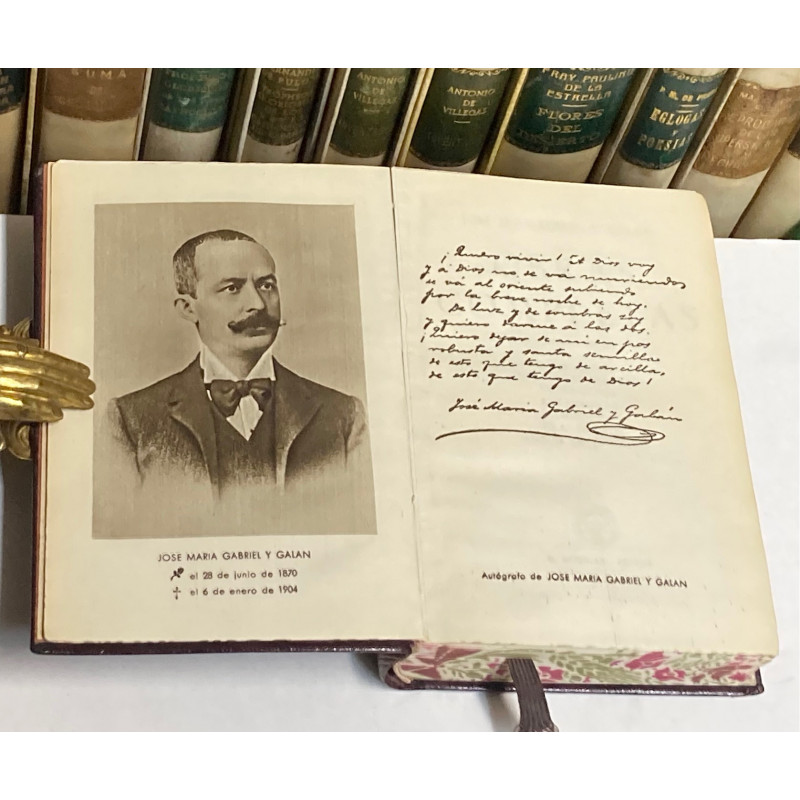 SUMA
ANTONIO
DE
VILLEGAS
ANTONIO
DE
VILLEGAS
FRAY PAULINO
DE LA
ESTRELLA
FLORES
DEL
DESIERTO
EGLOGAS
Y
POESIAS
JOSE MARIA GABRIEL Y GALAN
el 28 de junio de 1870
el 6 de enero de 1904
¡Quiero vivir! A Dios voy
y á Dios no se vá muriendo,
se vá al oriente subiendo
por la breve noche de hoy.
De luz y de sombras soy
y quiero darme á las dos.
¡Quiero dejar de mi en pos
robusta y santa semilla
de esto que tengo de arcilla,
de esto que tengo de Dios!
José María Gabriel y Galán
Autógrafo de JOSE MARIA GABRIEL Y GALAN